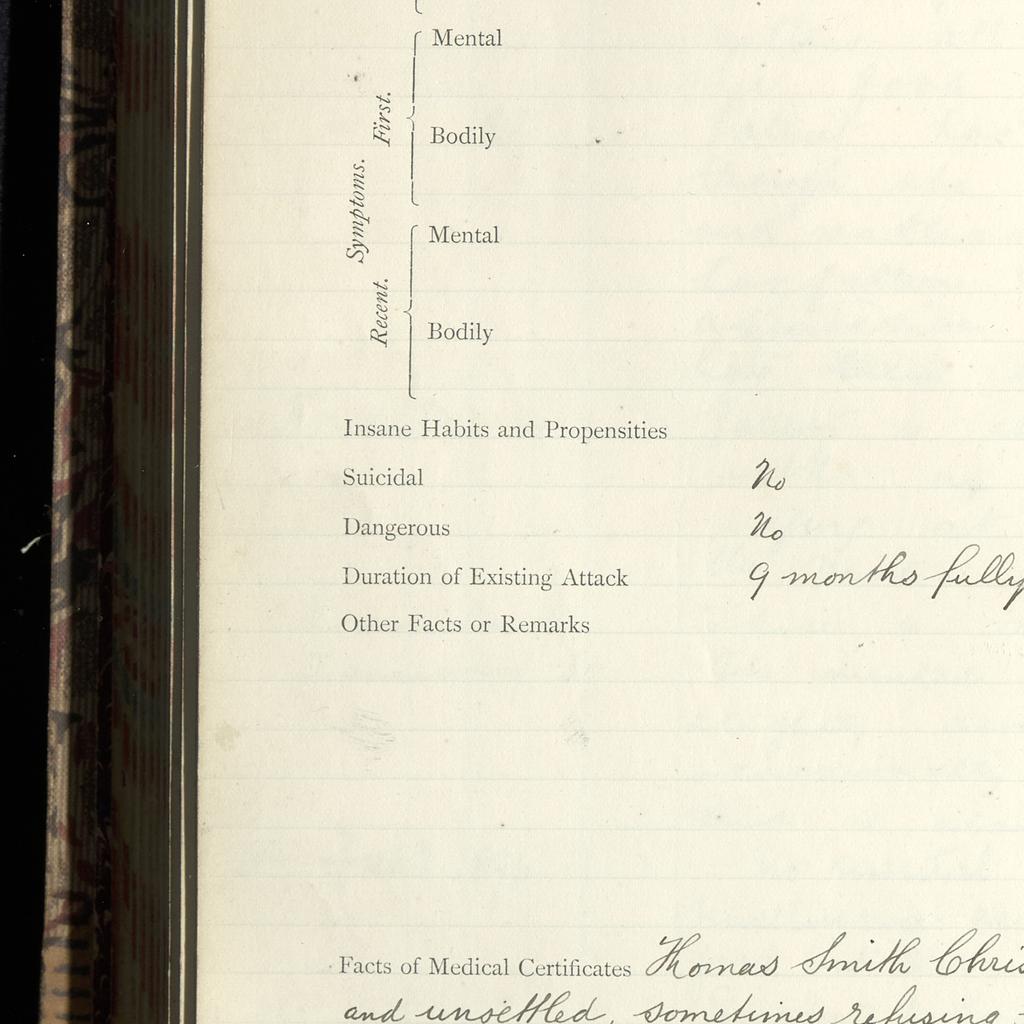 Mental
First.
Bodily
Symptoms.
Mental
Recent.
Bodily
Insane Habits and Propensities
Suicidal No
Dangerous No
Duration of Existing Attack 9 months fully
Other Facts or Remarks
Facts of Medical Certificates Thomas Smith Chris
and unsettled, sometimes refusing